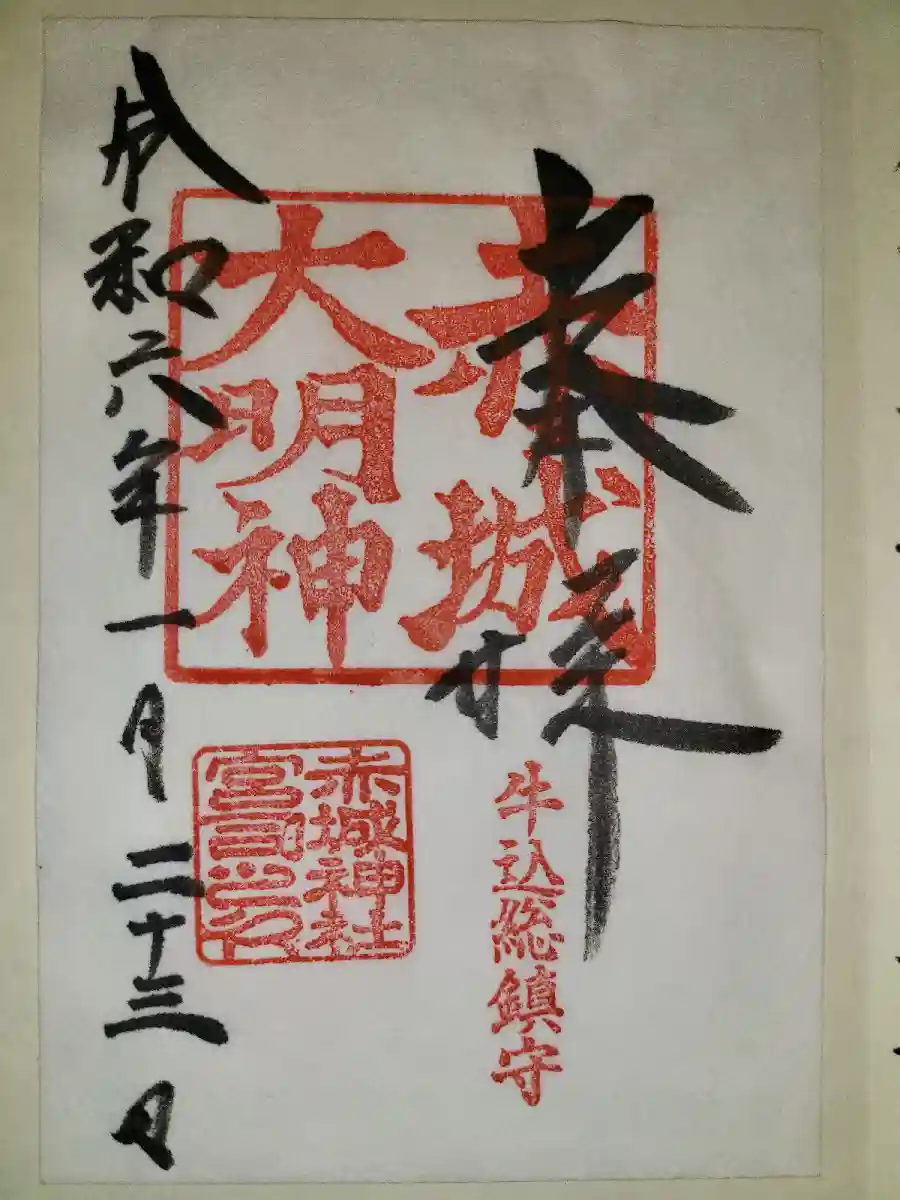 奉拝
牛込総鎮守
赤城
大明神
赤城神社
宮司之印
令和六年一月二十三日